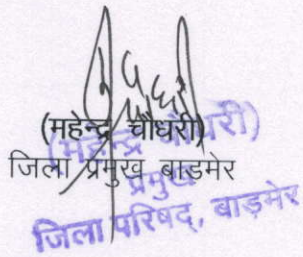 (महेन्द्र चौधरी)
जिला प्रमुख बाडमेर
(महेन्द्र चौधरी)
प्रमुख
जिला परिषद्, बाड़मेर